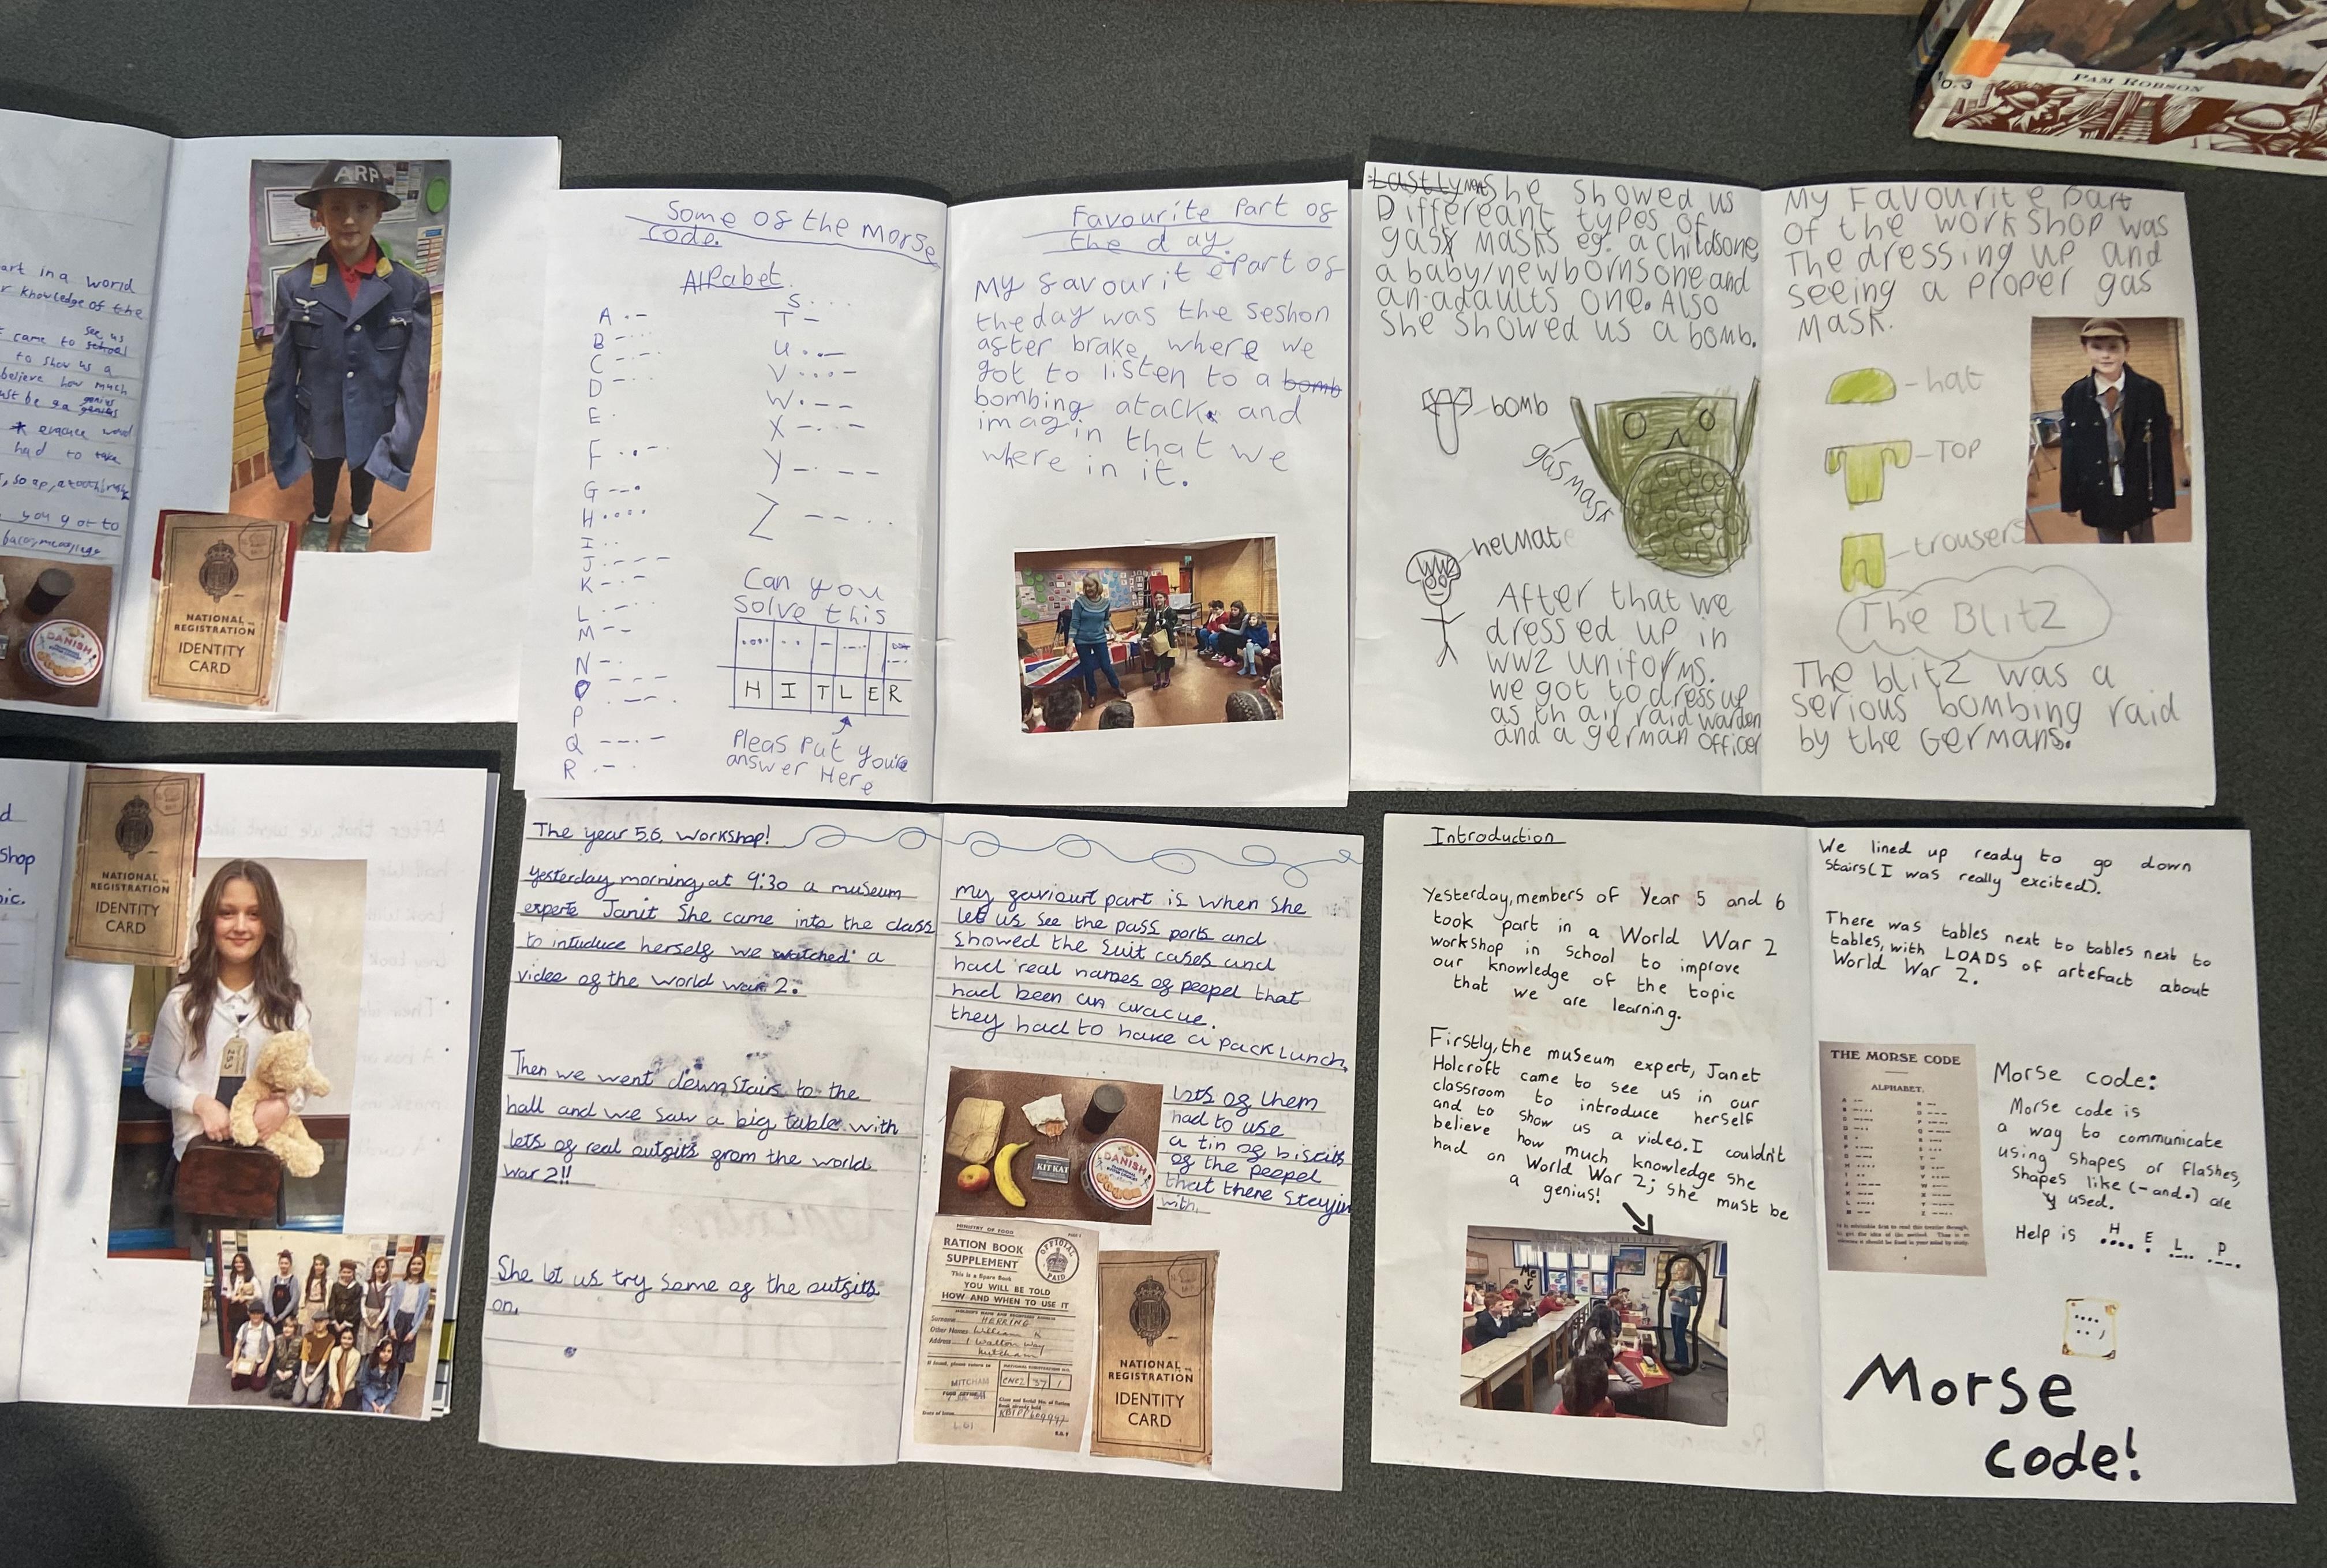 PAM ROBSON
art in a world
r knowledge of the
see us
came to school
to show us a
believe how much
genius
ust be ga genius
* evacuee word
had to take
, soap, a toothbrush
you got to
ARP
NATIONAL
REGISTRATION
IDENTITY
CARD
DANISH
Some of the Morse
code.
Alpabet
A .-
B -...
C -.-.
D -..
E .
F ..-.
G --.
H ....
I ..
J .---
K -.-
L .-..
M --
N -.
O ---
P .--.
Q --.-
R .-.
S ...
T -
U ..-
V ...-
W .--
X -..-
Y -.--
Z --..
Can you
solve this
H I T L E R
Pleas Put youre
answer Here
Favourite Part of
the day.
My favourite part of
the day was the seshon
after brake, where we
got to listen to a bomb
bombing atack and
imagin that we
where in it.
Lastly she showed us
Differeant types of
gask masks eg. a childsone,
a baby/newbornsone and
an adaults one. Also
she showed us a bomb.
bomb
gas mask
helmate
WW2
After that we
dressed up in
WW2 uniforms.
we got to dress up
as an air raid warden
and a german officer
My Favourite part
of the workshop was
The dressing up and
seeing a proper gas
mask.
hat
TOP
trousers
The Blitz
The blitz was a
serious bombing raid
by the Germans.
d
shop
pic.
NATIONAL
REGISTRATION
IDENTITY
CARD
253
The year 5,6, workshop!
Yesterday morning, at 9:30 a museum
experte Janit She came into the class
to intuduce herself we watched a
video of the world war 2.
Then we went down stairs to the
hall and we saw a big table with
lots of real outfits from the world
war 2!!
She let us try some of the outfits
on.
my faviourt part is when she
let us see the pass ports and
showed the suit cases and
had real names of peepel that
had been an avacue.
they had to have a pack lunch.
KIT KAT
DANISH
Lots of them
had to use
a tin of biscits
of the peepel
that there stayin
with.
MINISTRY OF FOOD
RATION BOOK
SUPPLEMENT
OFFICIAL
PAID
This is a Spare Book
YOU WILL BE TOLD
HOW AND WHEN TO USE IT
Surname HERRING
Other Names William K
Address 1 Walton Way
Mitcham
MITCHAM
CNEZ 37 1
Date of Issue
NATIONAL
REGISTRATION
IDENTITY
CARD
Introduction
Yesterday, members of Year 5 and 6
took part in a World War 2
workshop in school to improve
our knowledge of the topic
that we are learning.
Firstly, the museum expert, Janet
Holcroft came to see us in our
classroom to introduce herself
and to show us a video. I couldn't
believe how much knowledge she
had on World War 2; she must be
a genius!
Me
We lined up ready to go down
stairs (I was really excited).
There was tables next to tables next to
tables, with LOADS of artefact about
World War 2.
THE MORSE CODE
ALPHABET.
Morse code:
Morse code is
a way to communicate
using shapes or flashes,
shapes like (- and .) are
used.
Help is H E L P
.... . .-.. .--.
Morse
code!